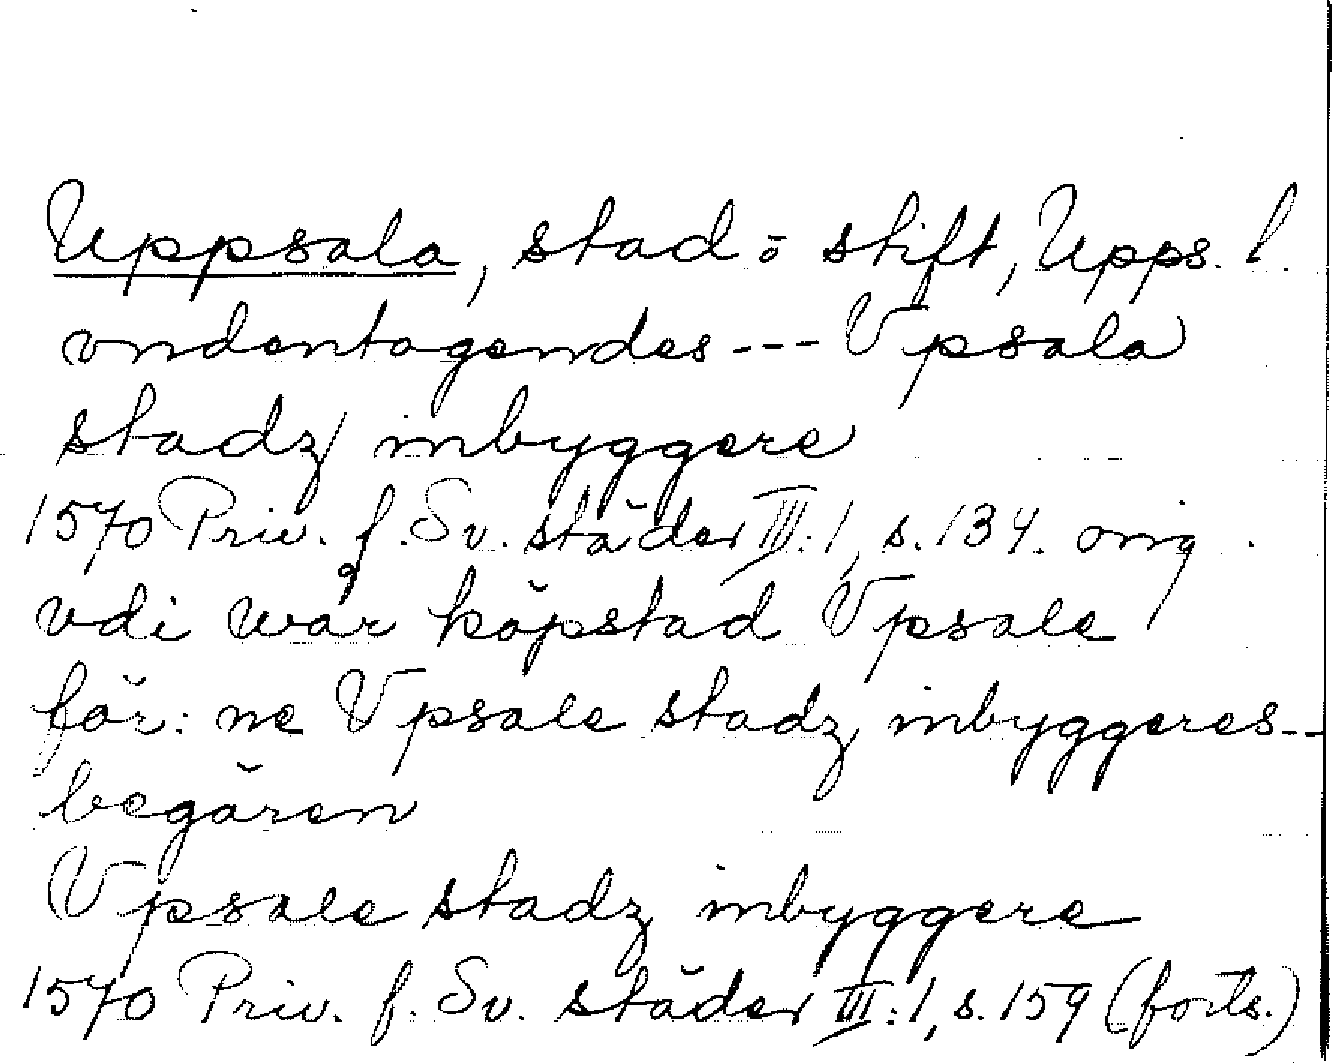 Uppsala, stad o stift, Upps. l.
vndentagendes --- Vpsala
stadz inbyggere
1570 Priv. f. Sv. städer III:1, s. 134. orig.
vdi wår köpstad Vpsale
för: ne Vpsale stadz inbyggeres --
begären
Vpsale stadz inbyggere
1570 Priv. f. Sv. städer III:1, s. 159 (forts.)